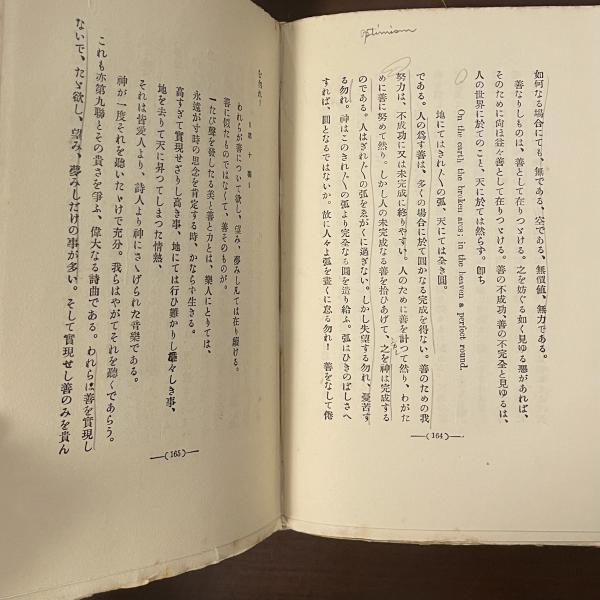 optimism
如何なる場合にても、無である、空である、無價値、無力である。
善なりしものは、善として在りつゞける。之を妨ぐる如く見ゆる惡があれば、
そのために尙ほ益々善として在りつゞける。善の不成功、善の不完全と見ゆるは、
人の世界に於てのこと、天に於ては然らず。卽ち
On the earth the broken arcs; in the heaven a perfect round.
地にてはきれ〴〵の弧、天にては全き圓。
である。人の爲す善は、多くの場合に於て圓かなる完成を得ない。善のための我
努力は、不成功に又は未完成に終りやすい。人のために善を計つて然り、わがた
めに善に努めて然り。しかし人の未完成なる善を拾ひあげて、之を神は完成する
のである。人はきれ〴〵の弧をゑがくに過ぎない。しかし失望する勿れ、憂苦す
る勿れ。神はこのきれ〴〵の弧より完全なる圓を造り給ふ。弧はひきのばしさへ
すれば、圓となるではないか。故に人々よ弧を畫くに怠る勿れ! 善をなして倦
—(164)—
む勿れ!
われらが善について欲し、望み、夢みしえては在り續ける。
善に似たものではなくて、善そのものが。
一たび聲を發したる美と善と力とは、樂人にとりては、
永遠が寸時の思念を肯定する時、かならず生きる。
高すぎて實現せざりし高き事、地にては行ひ難かりし雄々しき事、
地を去りて天に昇つてしまつた情熱、
それは皆愛人より、詩人より神にさゝげられた音樂である。
神が一度それを聽いたゞけで充分。我らはやがてそれを聽くであらう。
これも亦第九聯とその貴さを爭ふ、偉大なる詩曲である。われらは善を實現し
ないで、たゞ欲し、望み、夢みしだけの事が多い。そして實現せし善のみを貴ん
—(165)—